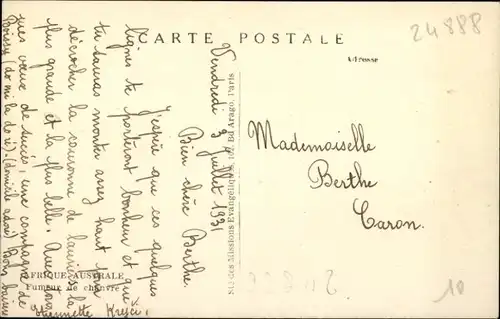 CARTE POSTALE
Adresse
24888
Vendredi 3 Juillet 1931
Bien chère Berthe.
J'espère que ces quelques
lignes te porteront bonheur et que
tu sauras monter assez haut pour
décrocher la couronne de lauriers la
plus grande et la plus belle. Avec nos
vœux de succès, une compagne de
Boissy (do mi la do ré). (domicile adoré) Bons baisers
Henriette Krejci.
AFRIQUE AUSTRALE
Fumeur de chanvre
Sté des Missions Evangéliques, 102, Bd Arago, Paris
Mademoiselle
Berthe
Caron.
10